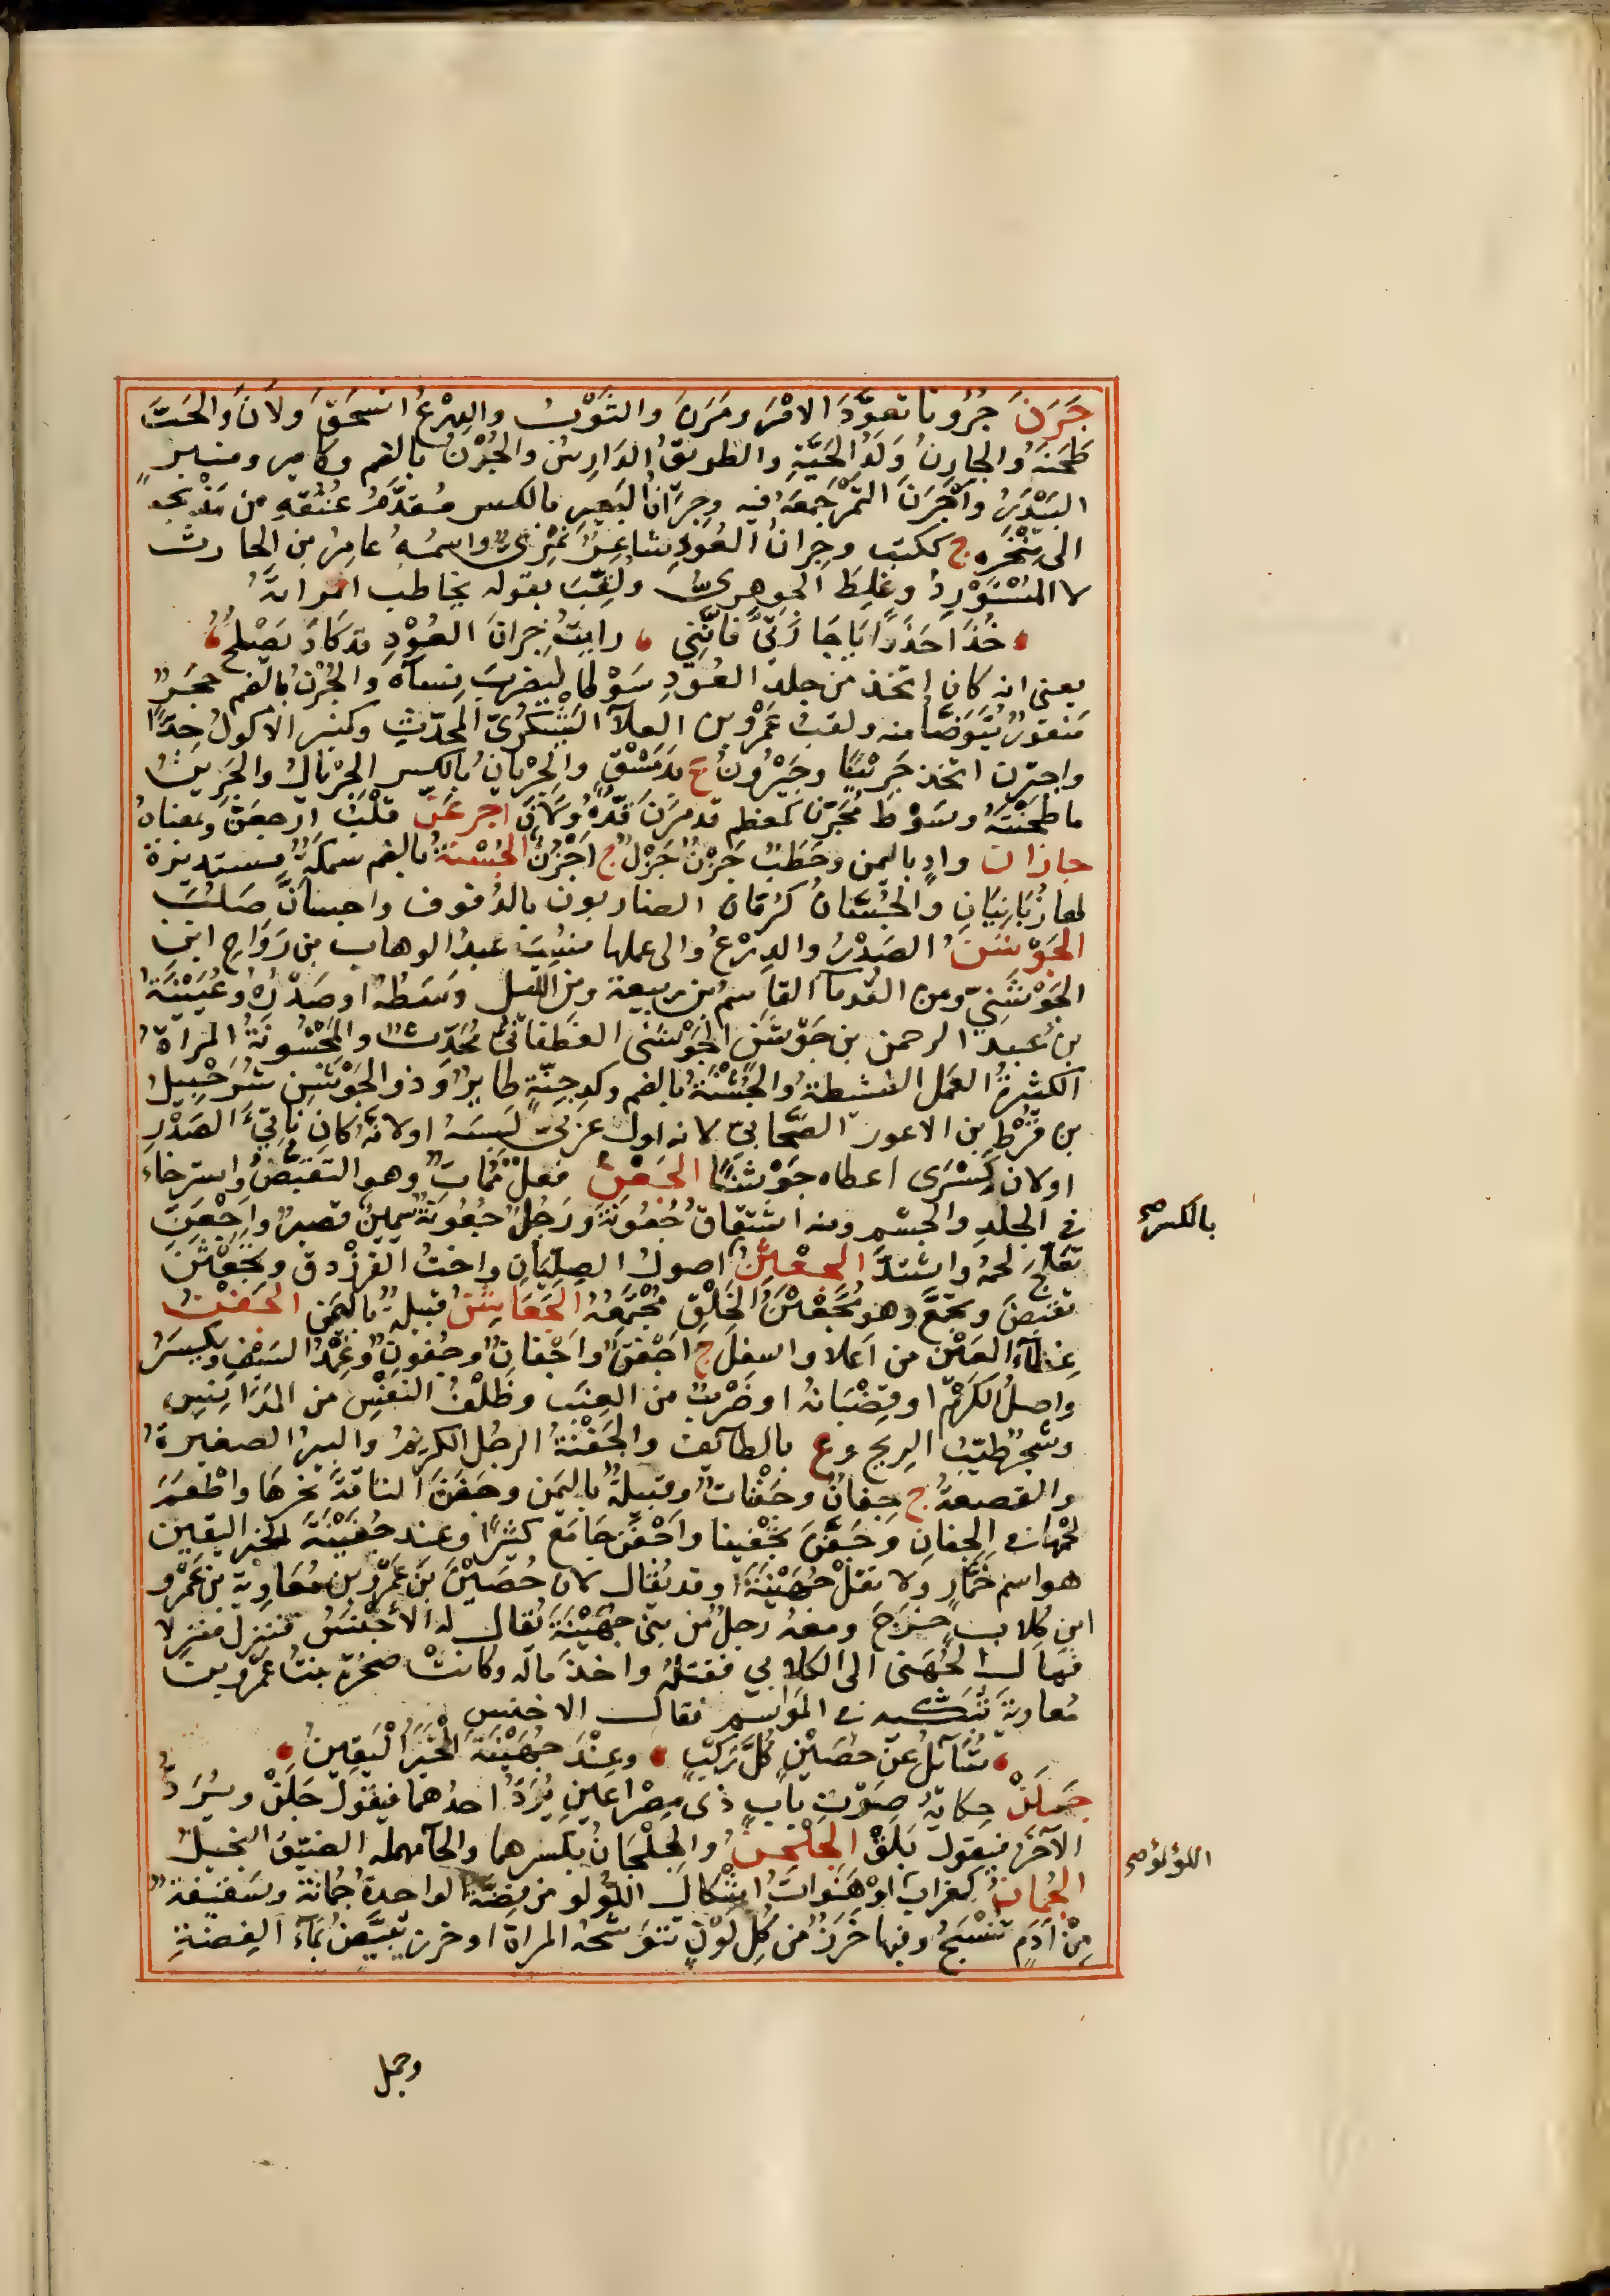 جَرَنَ جُرُونا تعوَّدَ الامْرَ ومَرَنَ والثَوْبُ والدِرْعُ انسَحَقَ ولَانَ والحَبَّ
طَحَنَهُ والجارِنُ وَلَدُ الحَيَّةِ والطريقُ الدَارِسُ والجُرْنُ بالضم وكامير ومنبرٍ
البَيْدَرُ واَجْرَنَ التَمْرَ جَمَعَهُ فيه وجِرَانُ البَعِيرِ بالكسر مُقَدَّمُ عُنُقهِ من مَذْبحه
الى مَنْخَرِهِ ج ككتب وجِرانُ العَوْدِ شاعِرٌ نَمَرِىٌّ واسمُه عامِرُ بن الحارث
لا المُسْتَوْرِدُ وغَلِطَ الجوهرىُّ ولُقِّبَ بقوله يخاطب امراتَهُ
خُذَا حَذَرًا يَا جَارَتَىَّ فانَّنِي رايتُ جِرانَ العَوْدِ قد كَادَ يَصْلُحُ
يعنى انه كان اتخذ من جلد العَوْدِ سَوْطا ليضربَ نساَه والجُرْنُ بالضم حجَرٌ
مَنقورٌ يُتَوَضَّا منه ولقبُ عَمْرِو بن العلآ اليَشْكُرِىّ المحدّثِ وكمنبر الاَكولُ جدًّا
واجترن اتخذ جَرينًا وجَيْرُونُ ع بدِمَشْقَ والجِرْيانُ بالكسر الجِرْيالُ والجَرِينُ
ما طحَنْتَهُ وسَوْط مُجَرَّنٌ كمعظم قد مَرَنَ قَدُّهُ ولَانَ اجرعَنَّ قَلْبُ ارجعَنَّ وبمعناهُ
جازان وادٍ باليمن وحَطَبٌ جَزْنٌ جَزْلٌ ج اَجْزُنٌ الجُسْنَةُ بالضم سمكةٌ مستديرة
لها زُبَانَيَانِ والجُسَّانُ كرُمَّان الضاربون بالدفوف واجسانَّ صَلُبَ
الجَوْشَنُ الصَدْرُ والدِرْعُ والى عملها نُسِبَ عبدُ الوهاب بن رَوَاج ابن
الجَوْشَنِيِّ ومن القُدمآ القاسمُ بن ربيعة ومن الليل وسَطُهُ او صَدْرُهُ وعُيَيْنَةُ
بن عبد الرحمن بن جَوْشَنٍ الجَوْشَنى الغطفانىُّ مُحَدِّثٌ والمَجْشُونَةُ المَرْاَةُ
الكثيرةُ العمل النشيطةُ والجُشْنَةُ بالضم وكدِجِنّةٍ طايرٌ وذو الجَوْشَنِ شُرَحْبِيلُ
بن قُرْط بن الاعور الصَّحابيّ لانه اول عربىٍّ لَبِسَهُ او لانَّه كان ناتِىءَ الصَدْرِ
او لان كِسْرَى اعطاه جَوْشَنًا الجَعْنُ فعل مُمات وهو التقبّضُ واسترخاء
فى الجلدِ والجسْمِ ومنه اشتقاق جُعُونَةَ ورَجُلٌ جُعُونَةٌ سَمِينٌ قصيرٌ واِجْعَنَّ
تعلّجَ لحمُهُ واشتدَّ الجِعْثِنُ اصول الصِلِّيَانِ واختُ الفرزْدق وتَجَعْثَنَ
تقبَّضَ وتجمَّعَ وهو مُجَعْثَنُ الخَلْقِ مُجْتَمِعُهُ الجَعَاثِنُ قبيلةٌ باليَمَنِ الجَفْنُ
غِطَآءُ العَيْنِ من اَعلا واسفلَ ج اَجْفُنٌ واَجْفانٌ وجُفُونٌ وغِمْدُ السَيْفِ ويُكْسَرُ
واصلُ الكَرْمِ او قِضْبَانُه او ضَرْبٌ من العِنَبِ وظَلْفُ النَفْسِ من المَدَانِيسِ
وشَجَرٌ طَيّبُ الريح وع بالطآيف والجَفْنَةُ الرجُل الكريمُ والبِيرُ الصغيرةُ
والقصعةُ ج جِفانٌ وجَفْنَاتٌ وقبيلةٌ باليَمَن وجَفَنَ الناقةَ نَحَرَهَا واطْعَمَ
لحمَها فى الجِفانِ وجَفَّنَ تجْفِينا واَجْفَنَ جَامَع كثيرًا وعند جُفَيْنَةَ الخبرُ اليقين
هو اسم خَمَّارٍ ولا تقلْ جُهَيْنَةَ او قد يُقال لان حُصَيْنَ بنَ عَمْرِو بن مُعَاوِيةَ بن عَمْرو
ابن كلاب خرَجَ ومعهُ رجلٌ من بنى جُهَيْنَةَ يُقال له الاخْنَسُ فنزل منزلا
فقال الجُهَنى الى الكلابي فقتلهُ واخذَ ماله وكانتْ صخرة بنتُ عمْرو بن
مُعاويةَ تَبكيه فى المَوَاسِمِ فقال الاخنس
تُسَآئِلُ عن حُصَيْنٍ كُلَّ رَكْبٍ وعِنْدَ جُهَيْنَةَ الخَبَرُ اليَقِينُ
جَلَنْ حِكايةُ صَوْتِ بابٍ ذى مِصْرَاعَينِ يُرَدّ احدُهما فيَقول جَلَنْ ويُرَدّ
الآخَرُ فيقول بَلَقْ الجِلْحِنُ والجِلْحَانُ بكَسْرهما والحآ مهمله الضيّقُ البخيلُ
الجُمانُ كغرابٍ او هَنَوات اشْكال اللؤلو من فِضَّةٍ الواحدةُ جُمانة وسَفيفةٌ
مِنْ اَدَمٍ تُنْسَجُ وفيها خَرَزٌ من كُل لَوْنٍ تتوَشَّحُهُ المراة او خرز يُبَيَّضُ بماءِ الفِضّةِ
بالكسر صح
اللؤلؤ صح
وجمل